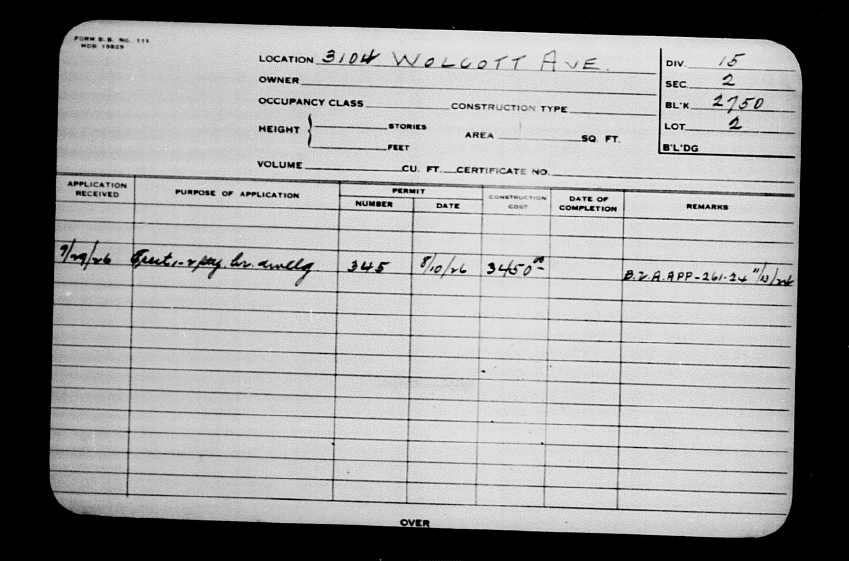 FORM B.B. No. 111
MDB 15829
LOCATION 3104 WOLCOTT AVE.
OWNER
OCCUPANCY CLASS CONSTRUCTION TYPE
HEIGHT { STORIES AREA SQ. FT.
FEET
VOLUME CU. FT. CERTIFICATE NO.
DIV. 15
SEC 2
BL'K 2750
LOT 2
B'L'DG
APPLICATION RECEIVED PURPOSE OF APPLICATION PERMIT NUMBER DATE CONSTRUCTION COST DATE OF COMPLETION REMARKS
7/29/26 Erect 1-2 sty. br. dwellg 345 8/10/26 3450.00 B.Z.A. APP-261-24 11/13/24
OVER